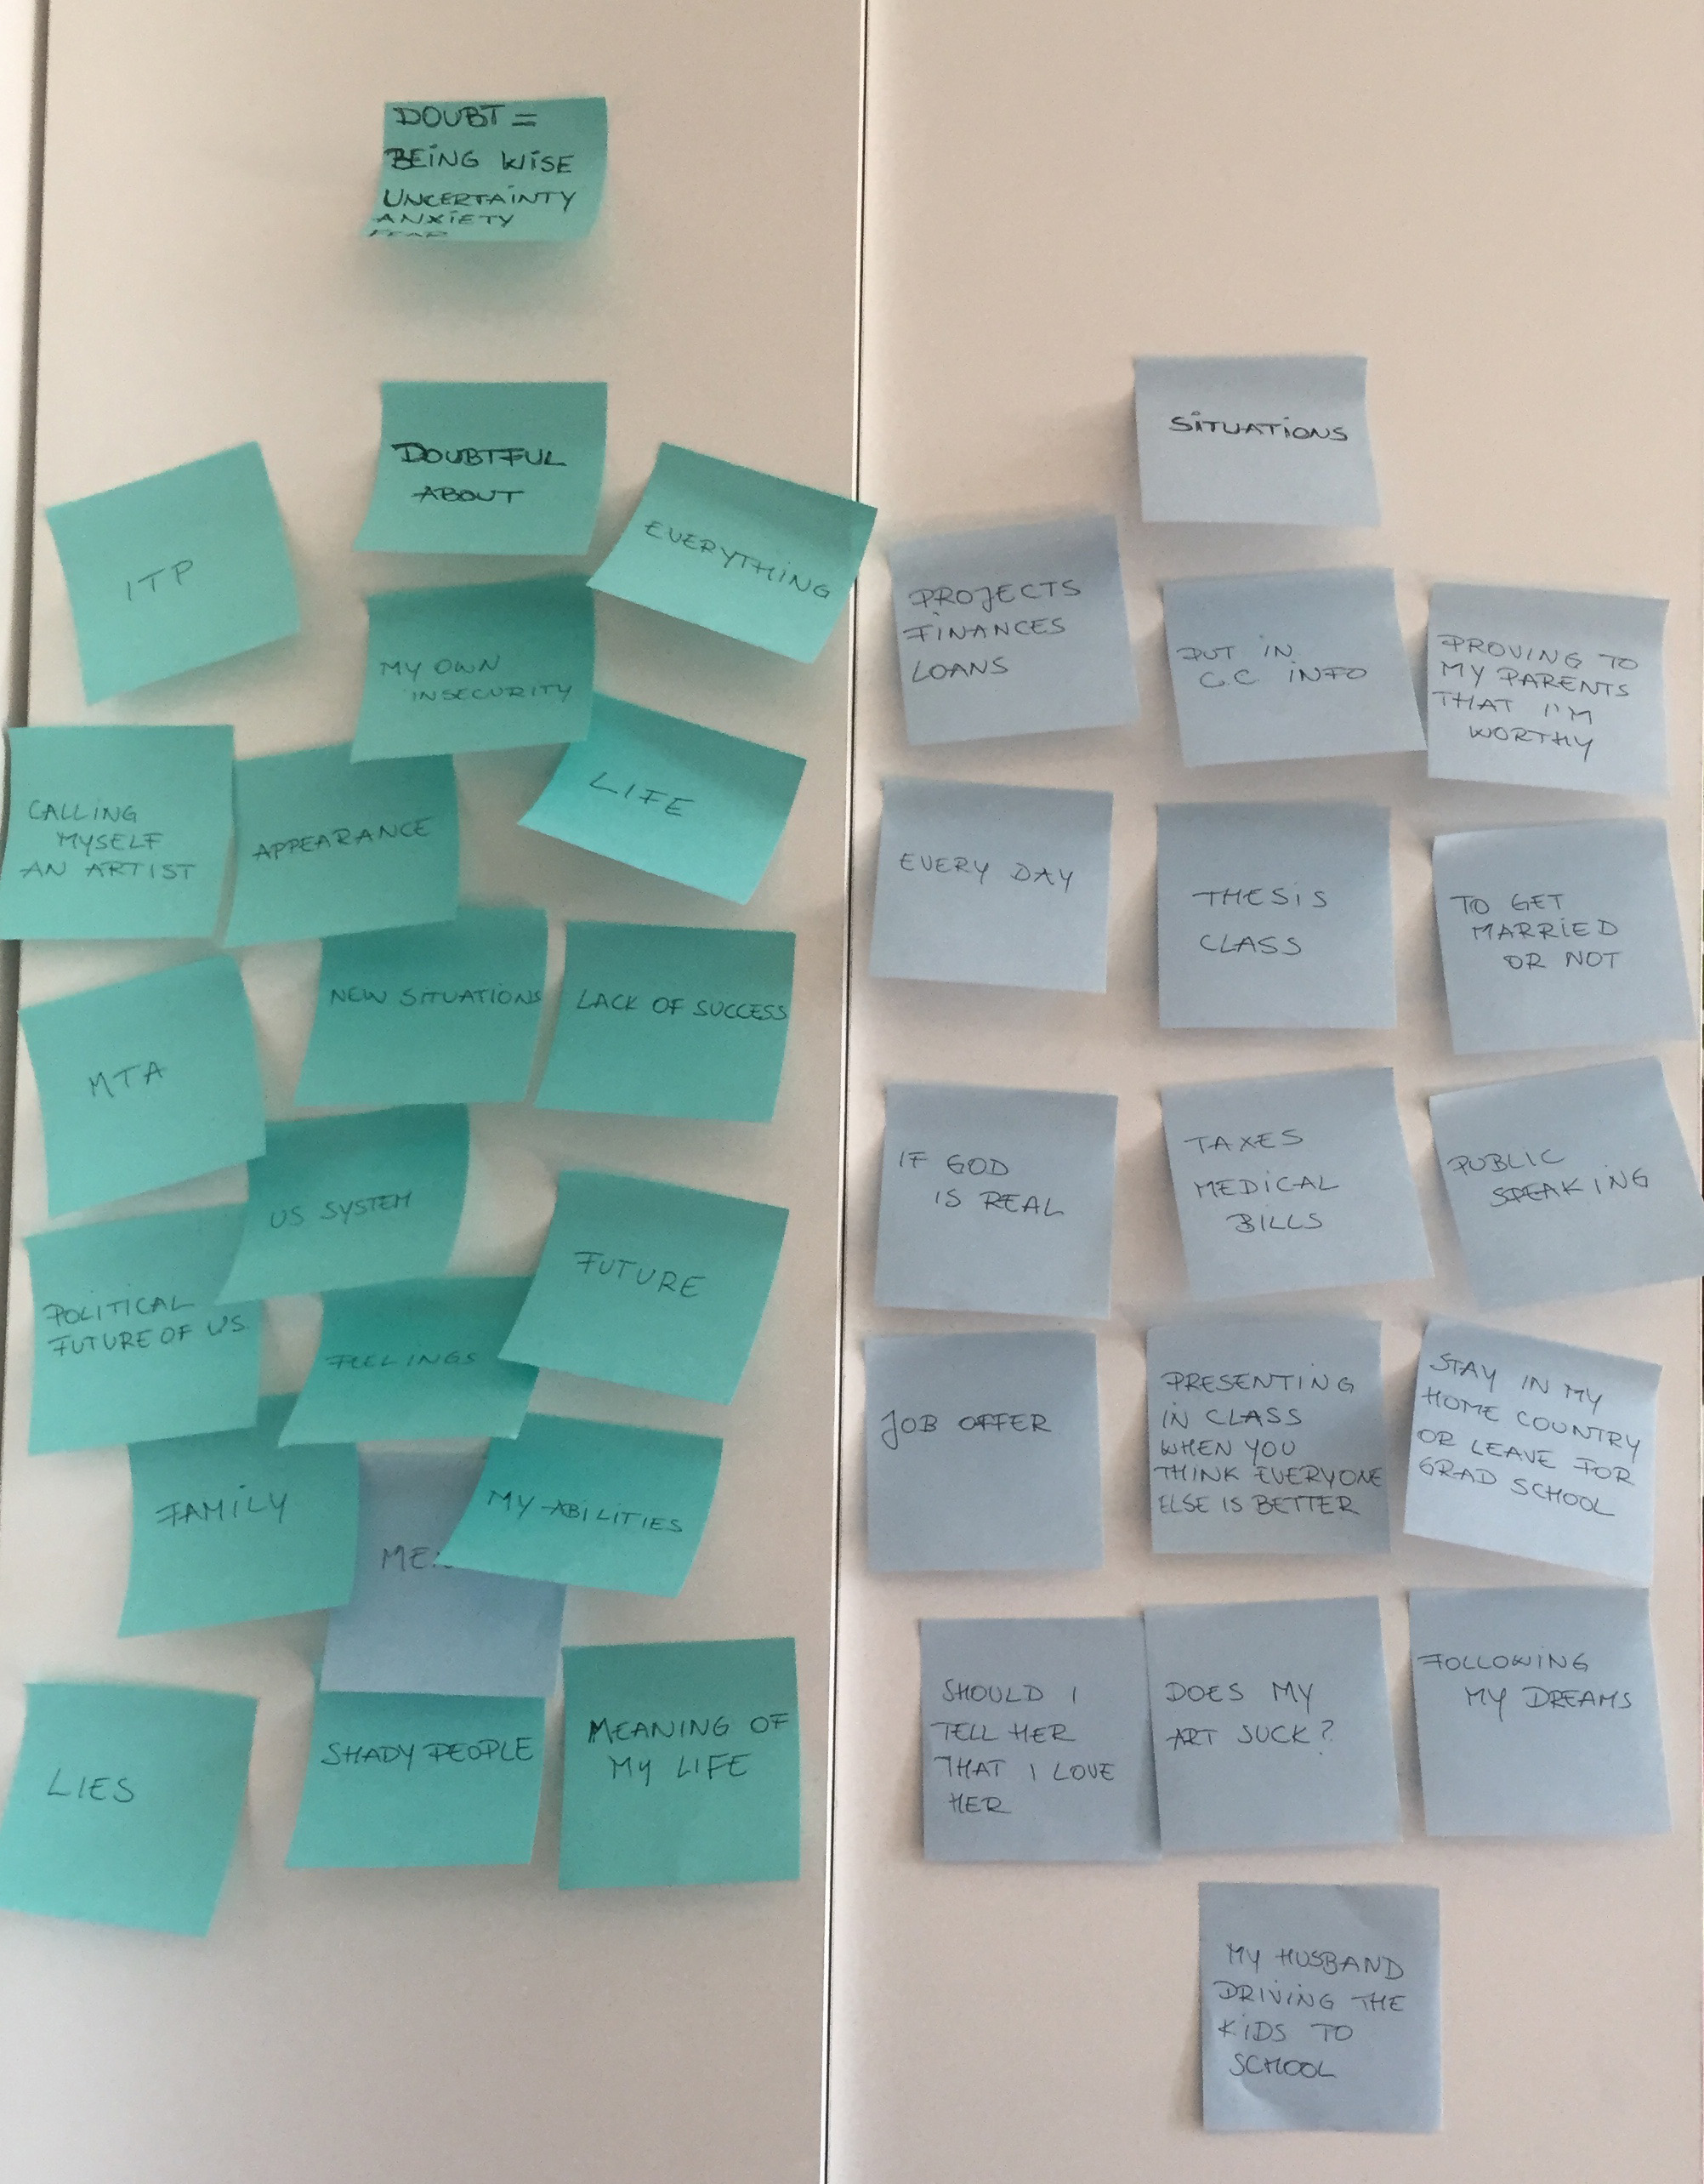 DOUBT =
BEING WISE
UNCERTAINTY
ANXIETY
FEAR
DOUBTFUL
ABOUT
ITP
EVERYTHING
MY OWN
INSECURITY
LIFE
CALLING
MYSELF
AN ARTIST
APPEARANCE
NEW SITUATIONS
LACK OF SUCCESS
MTA
US SYSTEM
FUTURE
POLITICAL
FUTURE OF US
FEELINGS
FAMILY
MY ABILITIES
LIES
SHADY PEOPLE
MEANING OF
MY LIFE
SITUATIONS
PROJECTS
FINANCES
LOANS
PUT IN
C.C INFO
PROVING TO
MY PARENTS
THAT I'M
WORTHY
EVERY DAY
THESIS
CLASS
TO GET
MARRIED
OR NOT
IF GOD
IS REAL
TAXES
MEDICAL
BILLS
PUBLIC
SPEAKING
JOB OFFER
PRESENTING
IN CLASS
WHEN YOU
THINK EVERYONE
ELSE IS BETTER
STAY IN MY
HOME COUNTRY
OR LEAVE FOR
GRAD SCHOOL
SHOULD I
TELL HER
THAT I LOVE
HER
DOES MY
ART SUCK?
FOLLOWING
MY DREAMS
MY HUSBAND
DRIVING THE
KIDS TO
SCHOOL